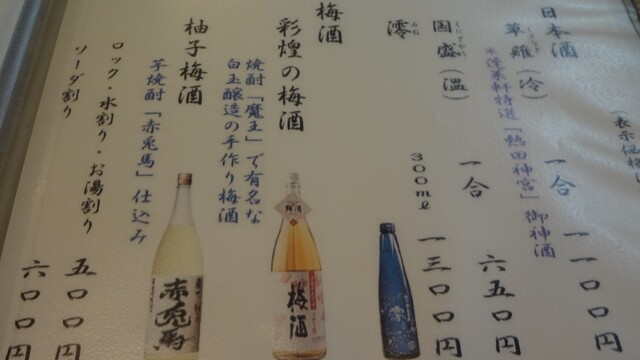 日本酒
草薙(冷) 一合 一一〇〇円
※蓬莱軒特選「熱田神宮」御神酒
国盛(温) 一合 六五〇円
澪 300ml 一三〇〇円
梅酒
彩煌の梅酒
焼酎「魔王」で有名な
白玉醸造の手作り梅酒
柚子梅酒
芋焼酎「赤兎馬」仕込み
ロック・水割り・お湯割り 五〇〇円
ソーダ割り 六〇〇円
梅酒
梅酒
赤兎馬